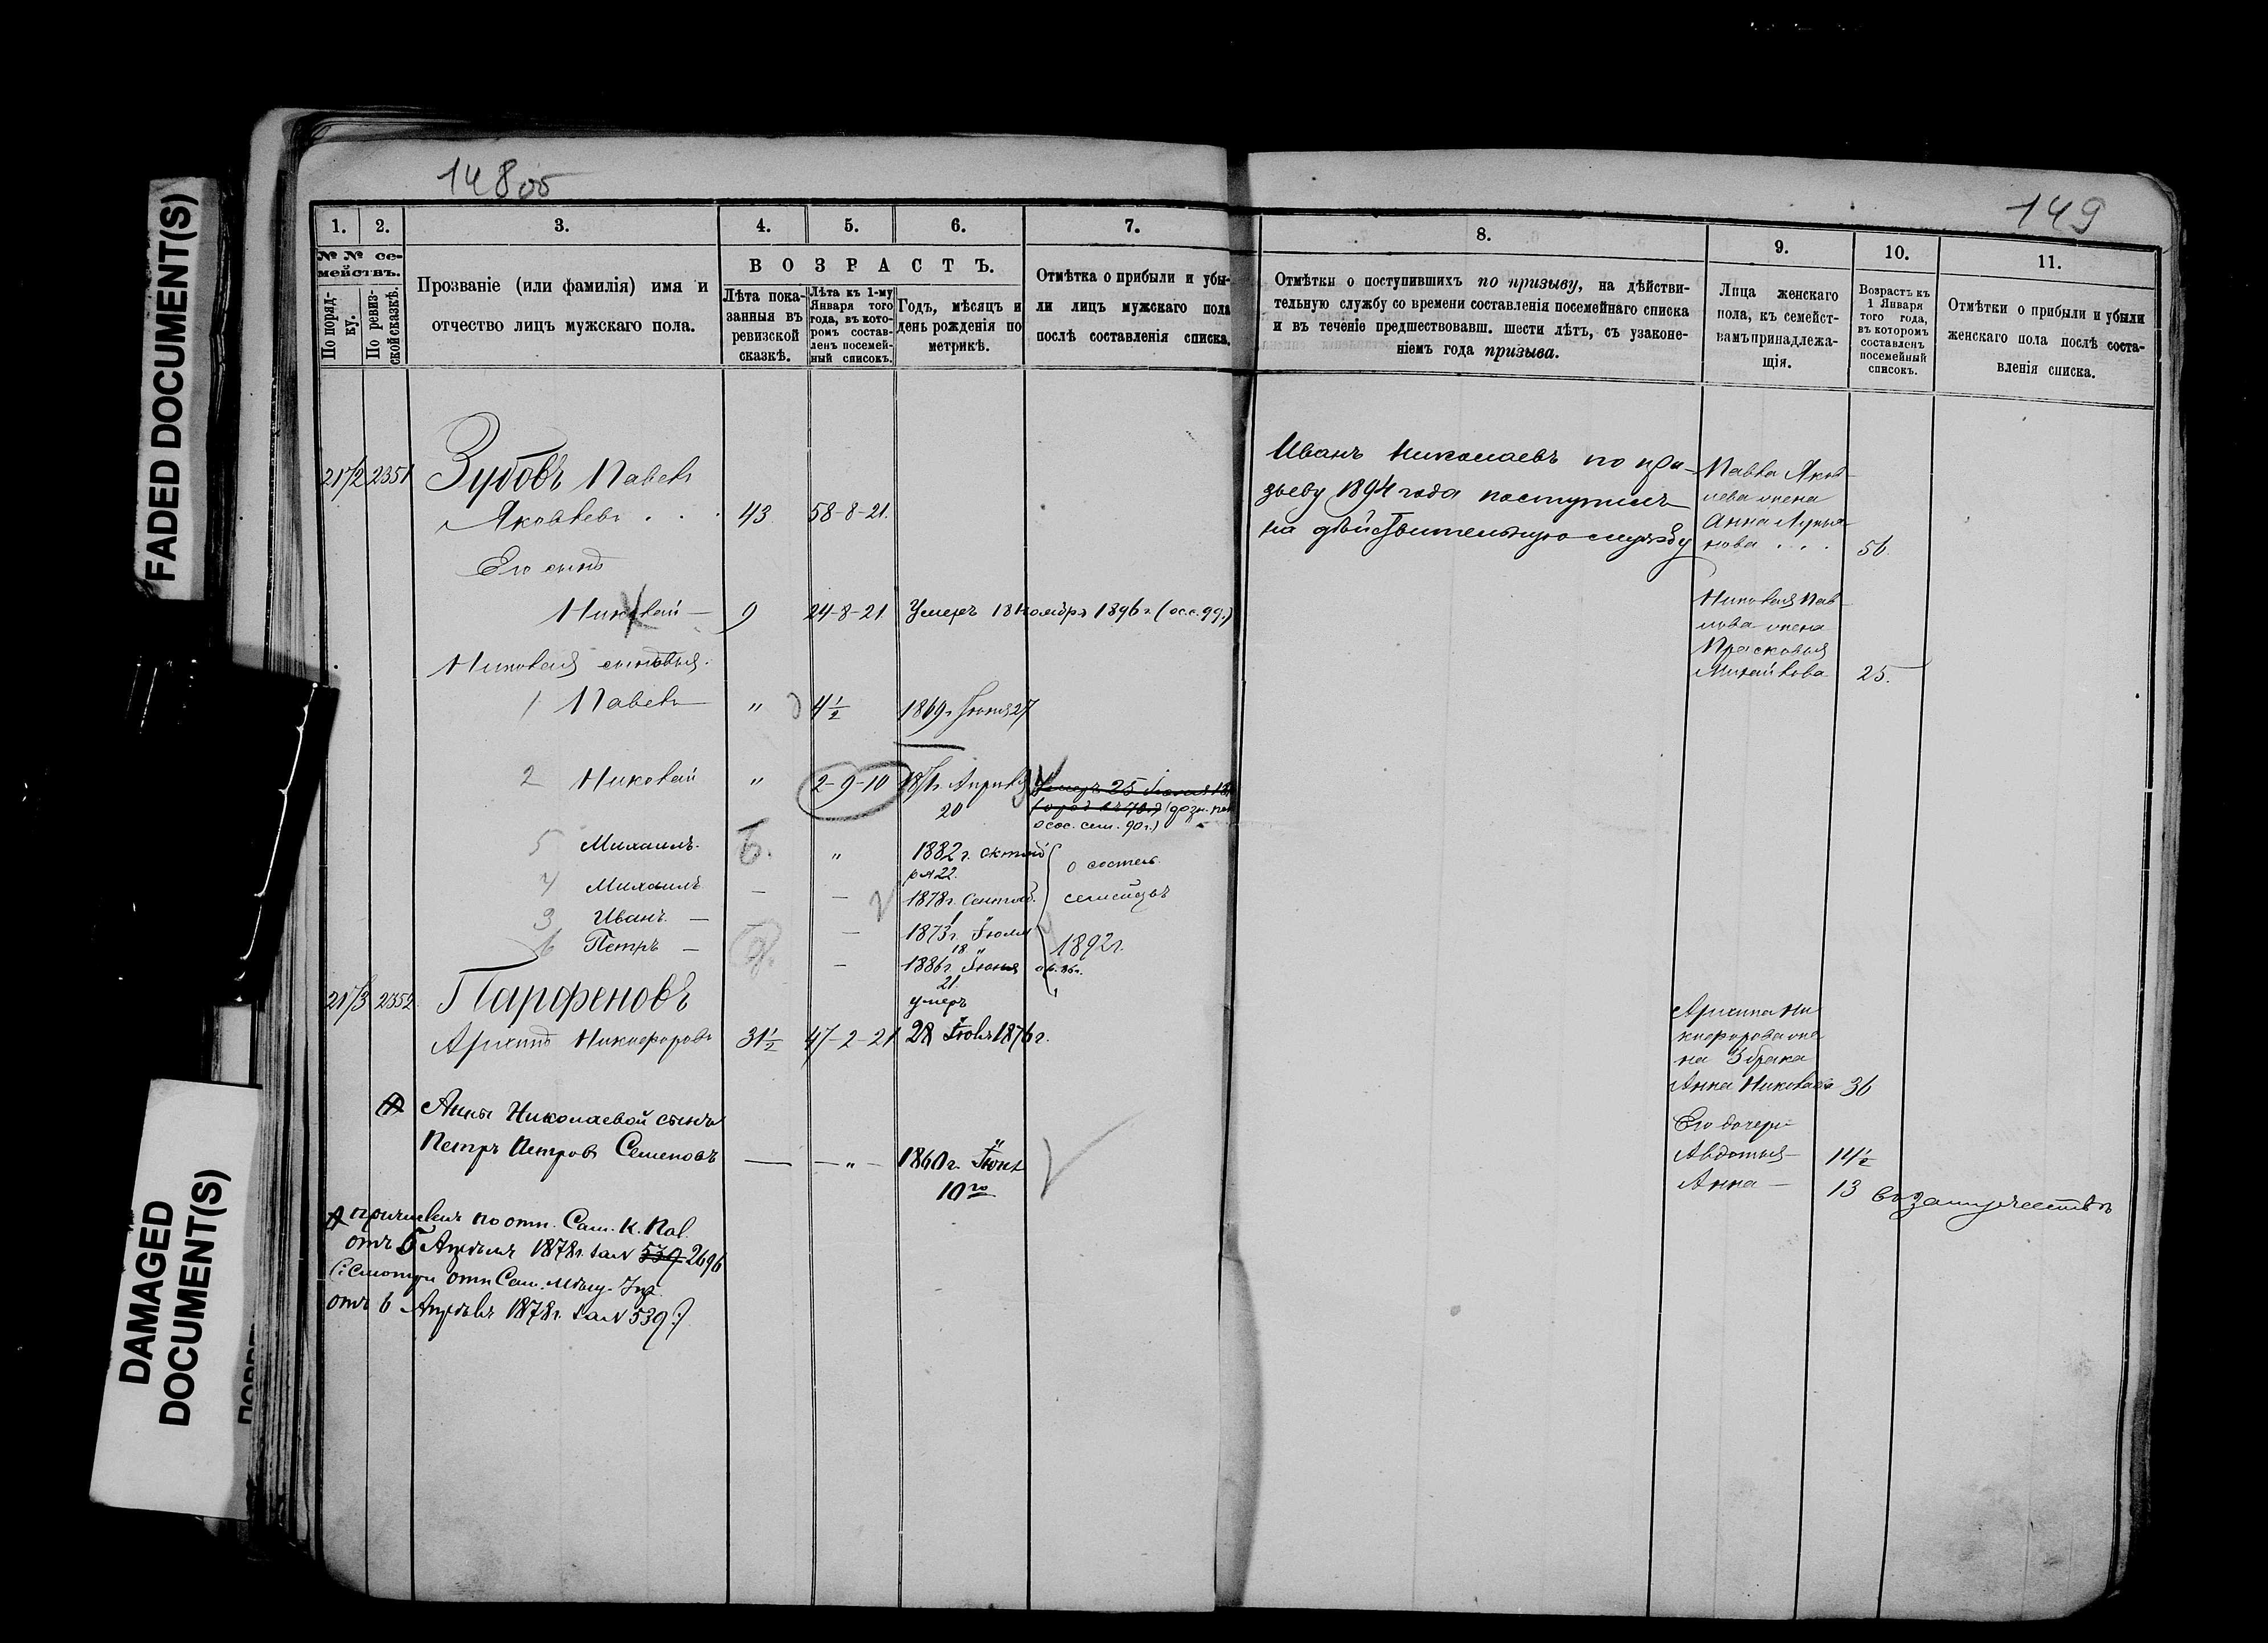 FADED DOCUMENT(S)
DAMAGED DOCUMENT(S)
148об
149
1.
2.
3.
4.
5.
6.
7.
8.
9.
10.
11.
№ № се-
мействъ.
По поряд-
ку.
По ревиз-
ской сказкѣ.
Прозваніе (или фамилія) имя и
отчество лицъ мужскаго пола.
ВОЗРАСТЪ.
Лѣта пока-
занныя въ
ревизской
сказкѣ.
Лѣта къ 1-му
Января того
года, въ кото-
ромъ состав-
ленъ посемей-
ный списокъ.
Годъ, мѣсяцъ и
день рожденія по
метрикѣ.
Отмѣтка о прибыли и убы-
ли лицъ мужскаго пола
послѣ составленія списка.
Отмѣтки о поступившихъ по призыву, на дѣйстви-
тельную службу со времени составленія посемейнаго списка
и въ теченіе предшествовавш. шести лѣтъ, съ узаконе-
ніемъ года призыва.
Лица женскаго
пола, къ семейст-
вамъ принадлежа-
щія.
Возрастъ къ
1 Января
того года,
въ которомъ
составленъ
посемейный
списокъ.
Отмѣтки о прибыли и убыли
женскаго пола послѣ соста-
вленія списка.
2351 Зубовъ Павелъ
Яковлевъ 43 58-8-21.
Его сынъ
Николай 9 24-8-21 Умеръ 18 Ноября 1896 г. (ос.с.99.)
Николая сыновья.
1 Павелъ " 4½ 1869 г. Іюня 27
2 Николай " 2-9-10 Апрѣля
20
Умеръ 25
осос. сем. 90 г.)
5 Михаилъ. Б. " 1882 г. октяб
ря 22.
4 Михаилъ — — 1878 г. Сентяб.
1
3 Иванъ. — — 1873 г. Іюля
18
6 Петръ — — 1886 г. Іюня
21
о состав.
семейств
1892 г.
Иванъ Николаевъ по при-
зыву 1894 года поступилъ
на дѣйствительную службу
Павла Яков-
лева жена
Анна
нова . . . 56.
Николая Пав-
лова жена
Прасковья
Михайлова 25.
2352 Парфеновъ
Архипъ Никифоровъ 31½ 47-2-21
умеръ
28 Іюля 1876 г.
Анны Николаевой сынъ
Петръ Петровъ Семеновъ — — " — 1860 г. Іюня
10го
причисленъ по отн. Сам. К. Пал.
отъ 5 Апрѣля 1878 г. за № 539 2696
(Смотри отн Сам. Мѣщ. Упр.
отъ 6 Апрѣля 1878 г. за № 539.)
Архипа Ни
кифорова же
на 3 брака
Анна Николаева 36
Его дочери
Авдотья 14½
Анна — 13 въ замужествѣ